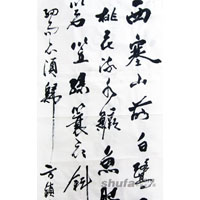 西塞山前白鷺
桃花流水鱖魚肥
箬笠綠蓑衣斜
細雨不須歸
shufa